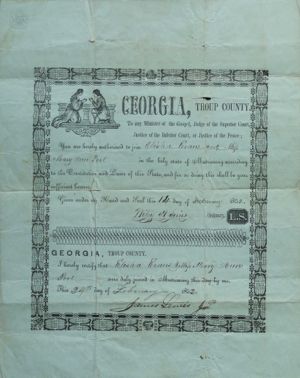 GEORGIA, TROUP COUNTY.
To any Minister of the Gospel, Judge of the Superior Court,
Justice of the Inferior Court, or Justice of the Peace:
You are hereby authorized to join Elisha Evans and
Mary Ann in the holy state of Matrimony according
to the Constitution and Laws of this State, and for so doing this shall be your
sufficient License.
Given under my Hand and Seal this 14 day of February
Ordinary. L.S.
GEORGIA, TROUP COUNTY.
I hereby certify that Elisha Evans & Miss Mary Ann
were duly joined in Matrimony this day by me.
This 24th day of February
James